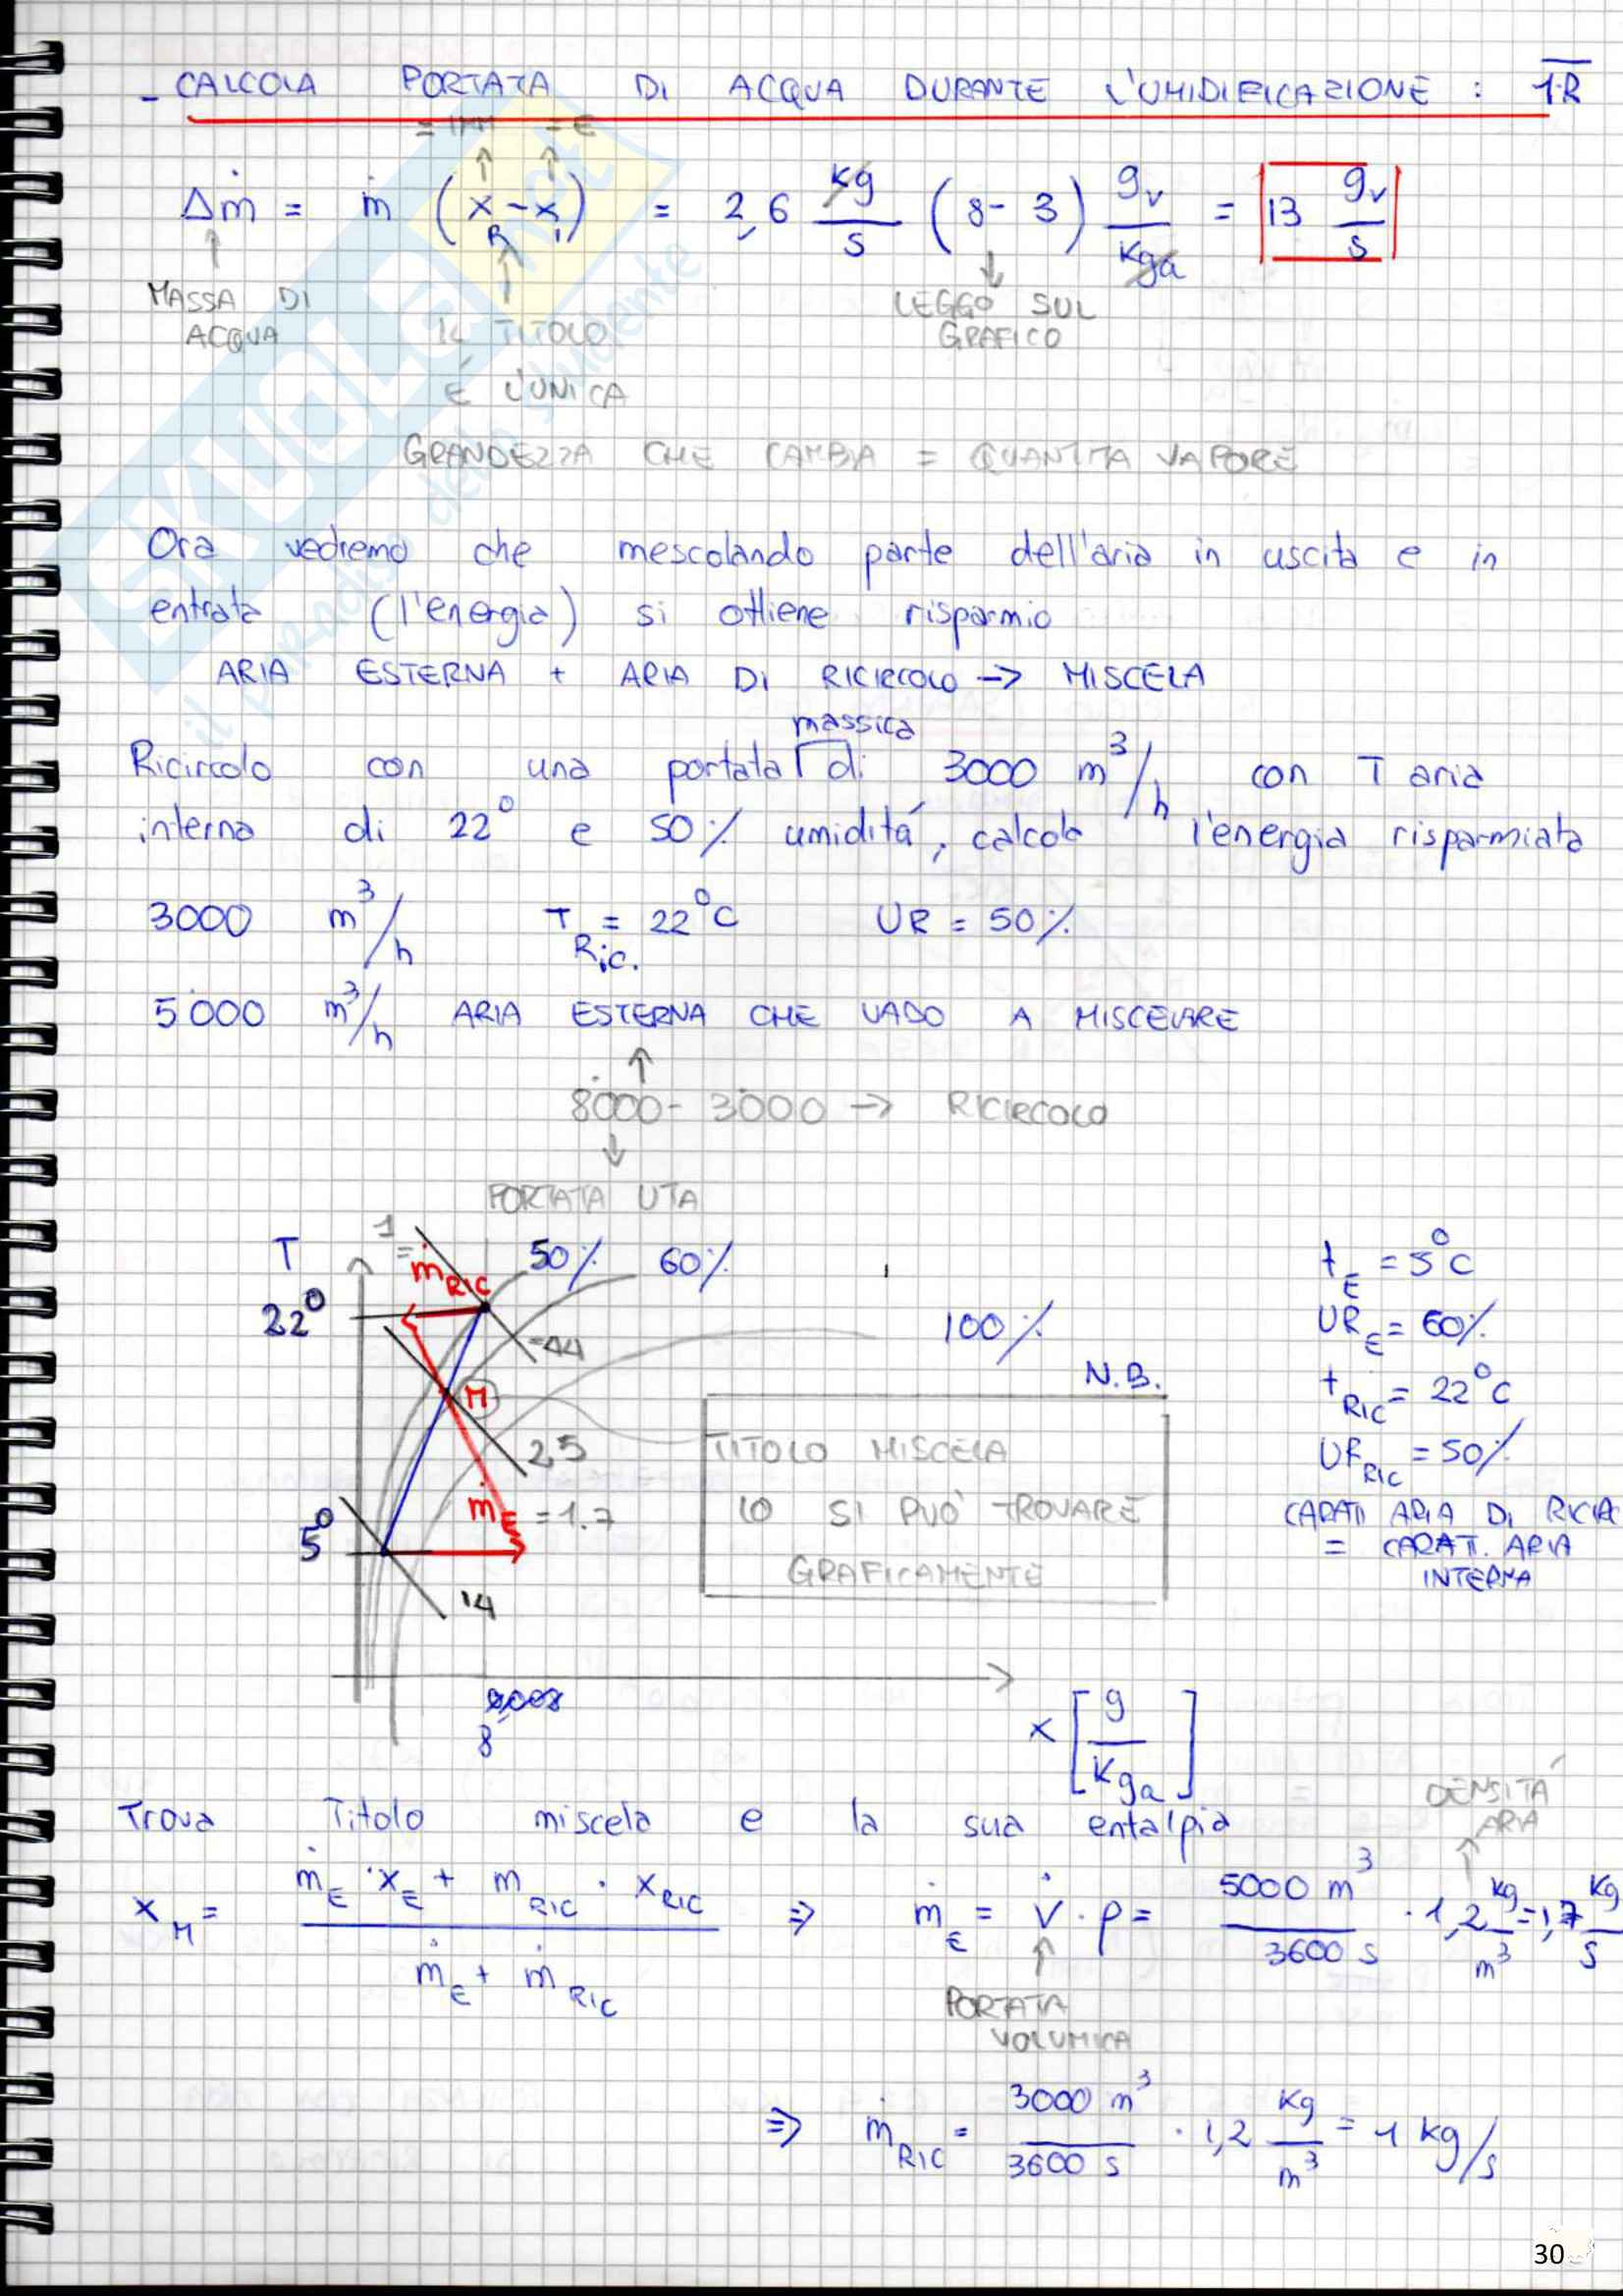 - CALCOLA PORTATA DI ACQUA DURANTE L'UMIDIFICAZIONE : 1-R
= IMM = E
Δṁ = ṁ (x_R - x_1) = 2,6 kg/s (8 - 3) g_v/kga = 13 g_v/s
MASSA DI ACQUA
IL TITOLO
É L'UNICA
GRANDEZZA CHE CAMBIA = QUANTITA VAPORE
LEGGO SUL GRAFICO
Ora vedremo che mescolando parte dell'aria in uscita e in
entrata (l'energia) si ottiene risparmio
ARIA ESTERNA + ARIA DI RICIRCOLO -> MISCELA
massica
Ricircolo con una portata di 3000 m³/h con T aria
interna di 22° e 50% umiditá, calcola l'energia risparmiata
3000 m³/h T_Ric. = 22°C UR = 50%
5000 m³/h ARIA ESTERNA CHE VADO A MISCELARE
8000 - 3000 -> RICIRCOLO
PORTATA UTA
T
1 = ṁ_RIC
50% 60%
22°
100%
44
M
25
ṁ_E = 1.7
5°
14
8
x [g/kga]
N.B.
TITOLO MISCELA
LO SI PUÒ TROVARE
GRAFICAMENTE
t_E = 5°C
UR_E = 60%
t_RIC = 22°C
UR_RIC = 50%
CARATT ARIA DI RICIR
= CARATT. ARIA
INTERNA
Trova Titolo miscela e la sua entalpia
DENSITÁ ARIA
x_M = (ṁ_E · x_E + m_RIC · x_RIC)/(ṁ_E + ṁ_RIC) => ṁ_E = V̇ · ρ = 5000 m³/3600 s · 1,2 kg/m³ = 1,7 kg/s
PORTATA VOLUMICA
=> ṁ_RIC = 3000 m³/3600 s · 1,2 kg/m³ = 1 kg/s
30
SKUOLA.net
il paradiso dello studente